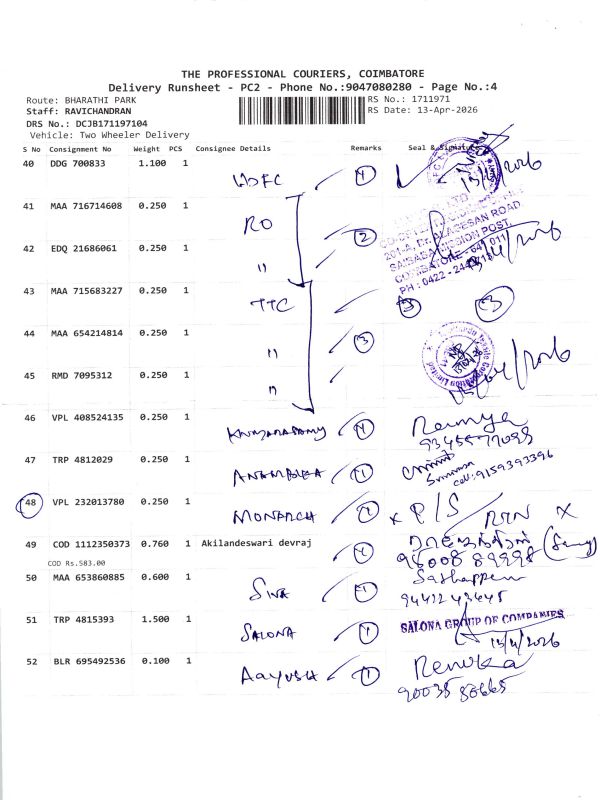 THE PROFESSIONAL COURIERS, COIMBATORE
Delivery Runsheet - PC2 - Phone No.:9047080280 - Page No.:4
Route: BHARATHI PARK
RS No.: 1711971
Staff: RAVICHANDRAN
RS Date: 13-Apr-2026
DRS No.: DCJB171197104
Vehicle: Two Wheeler Delivery
S No Consignment No Weight PCS Consignee Details Remarks Seal & Signature
40 DDG 700833 1.100 1
HDFC 1
41 MAA 716714608 0.250 1
RO 2
201-A, Dr. ALAGESAN ROAD
SAIBABA MISSION POST,
COIMBATORE - 641 011
42 EDQ 21686061 0.250 1
"
43 MAA 715683227 0.250 1
TTC 3
44 MAA 654214814 0.250 1
" 3
45 RMD 7095312 0.250 1
"
46 VPL 408524135 0.250 1
Kumarasamy 1 Ramya
47 TRP 4812029 0.250 1
1
cell: 9159393396
48 VPL 232013780 0.250 1
MONARCH 1 x P/S RTN X
49 COD 1112350373 0.760 1 Akilandeswari devraj
COD Rs.583.00
1 98008 89998
50 MAA 653860885 0.600 1
Siva 1
51 TRP 4815393 1.500 1
SALONA 1 SALONA GROUP OF COMPANIES
13/4/2026
52 BLR 695492536 0.100 1
Aayush 1 Renuka
90038 80665